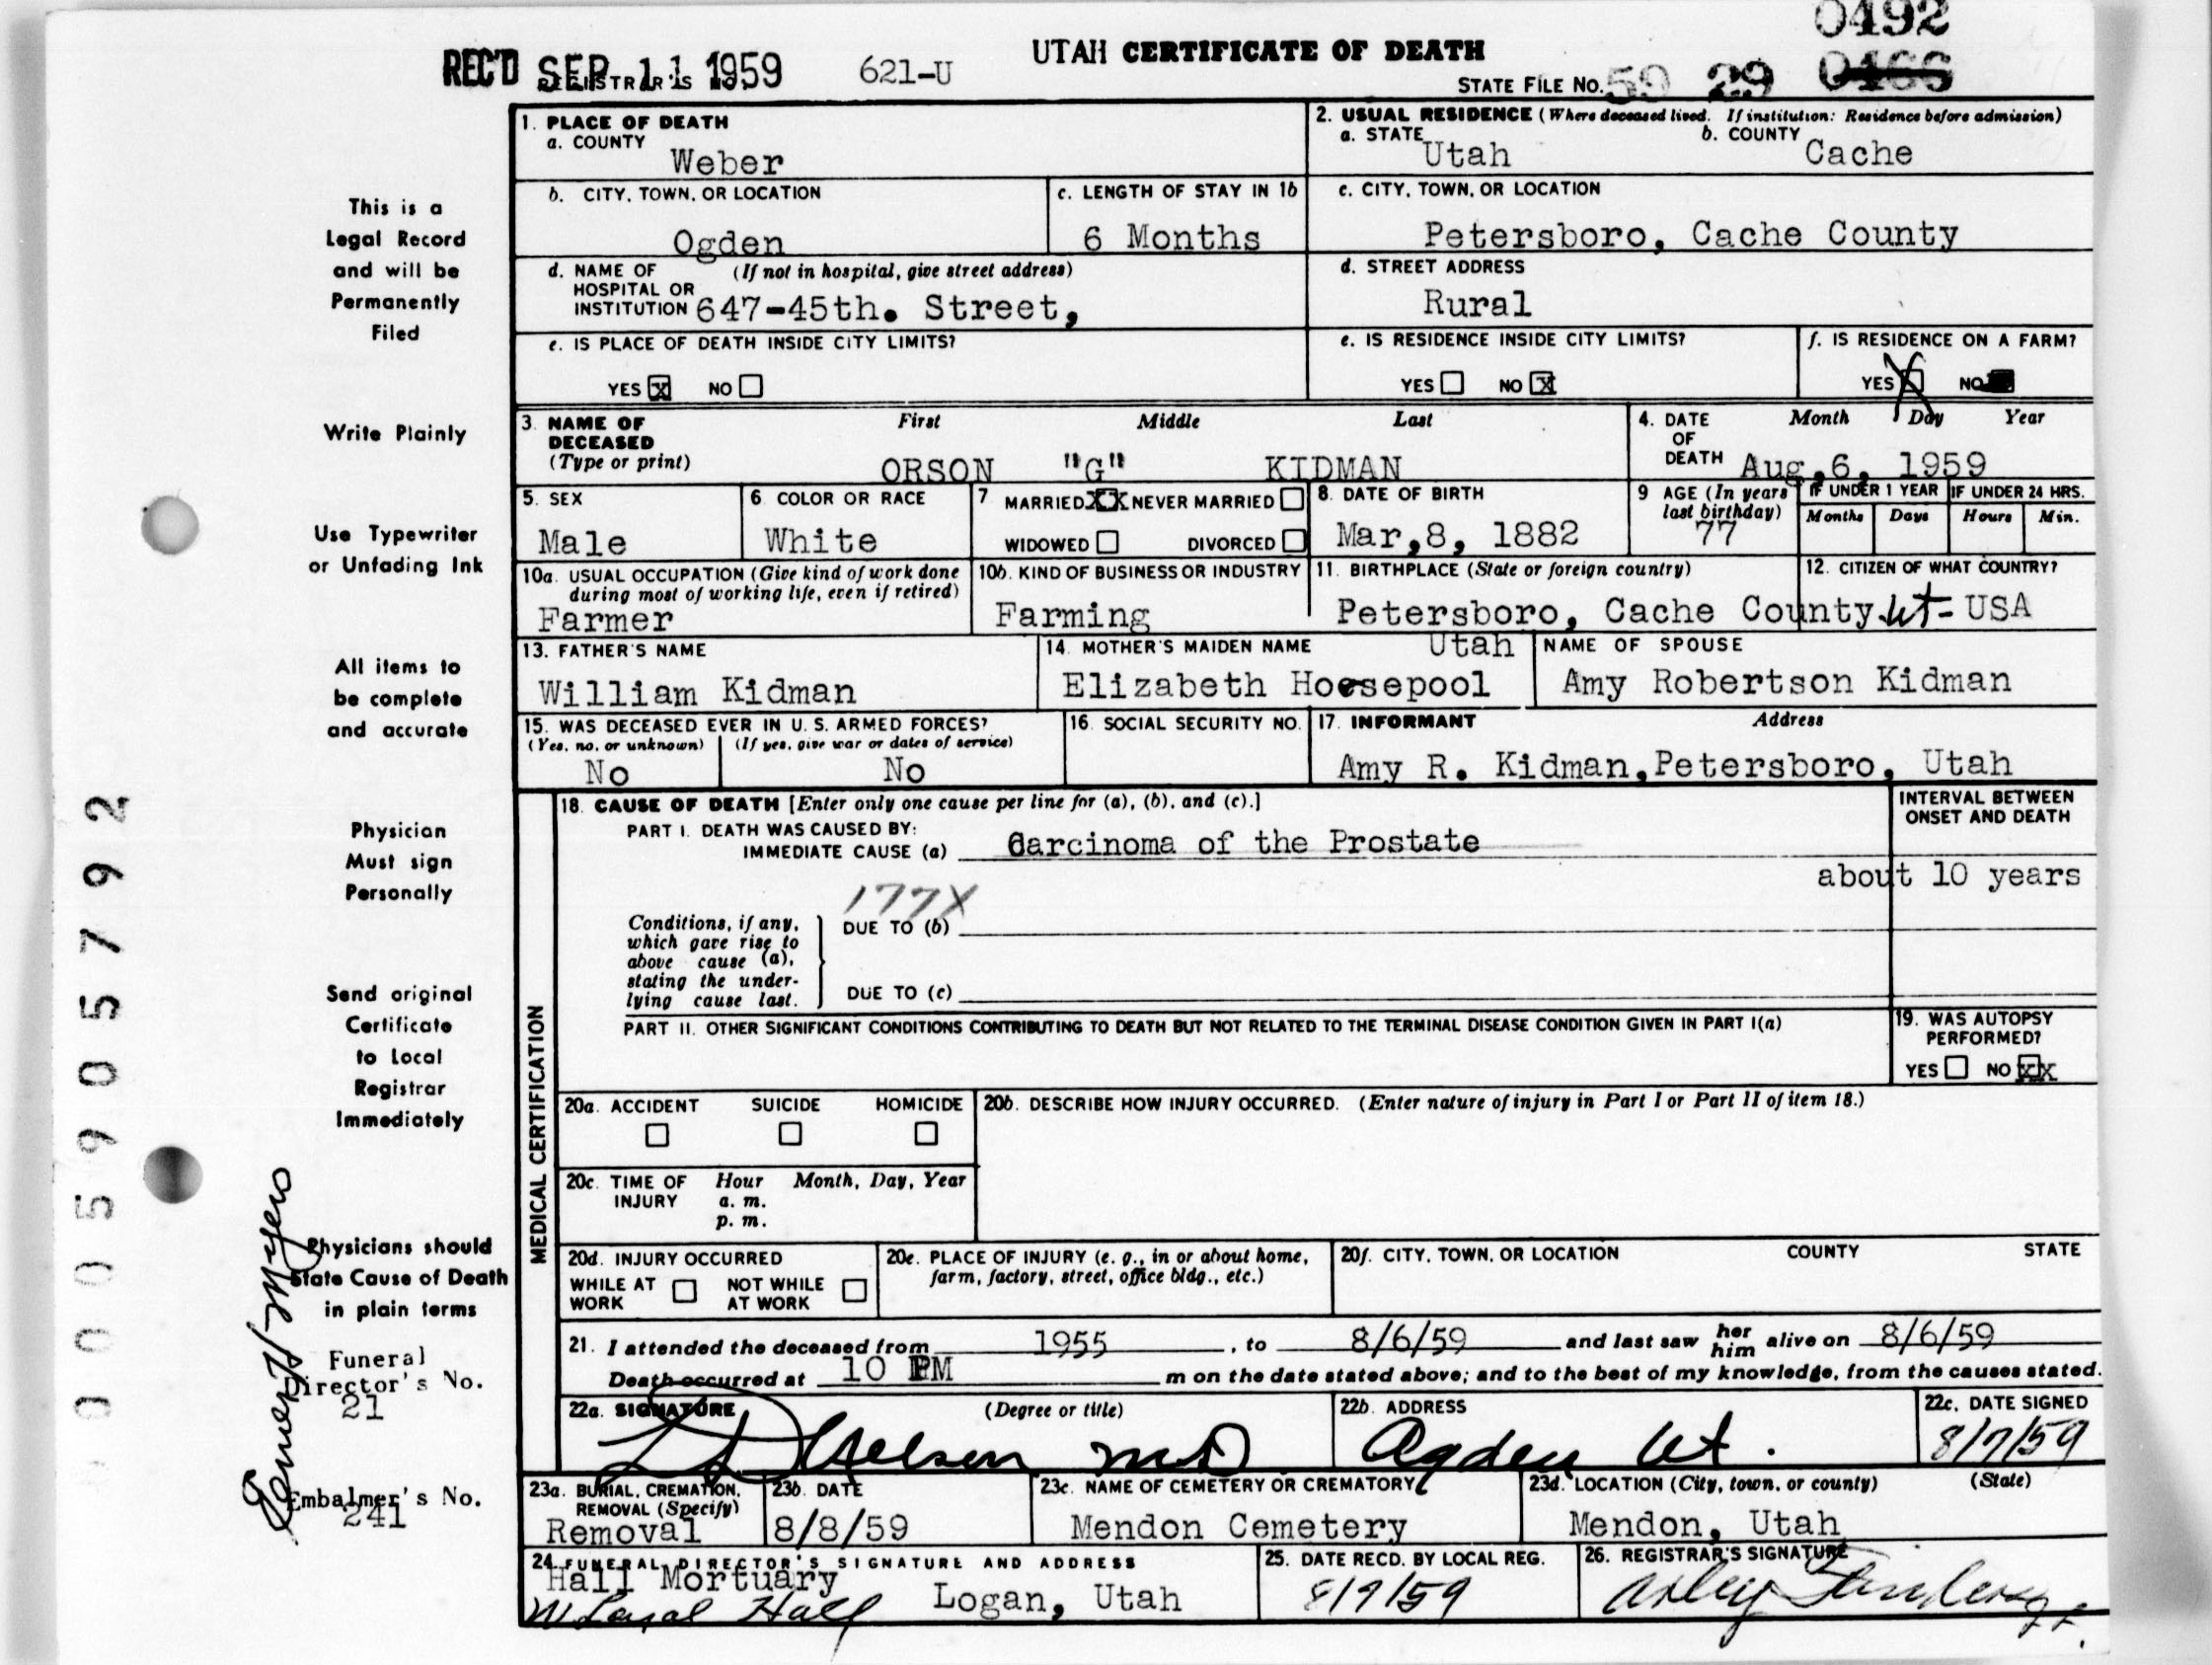 0492
REC'D SEP 11 1959 621-U UTAH CERTIFICATE OF DEATH
STATE FILE NO. 59 29 0466
1. PLACE OF DEATH
a. COUNTY
Weber
2. USUAL RESIDENCE (Where deceased lived. If institution: Residence before admission)
a. STATE Utah b. COUNTY Cache
b. CITY, TOWN, OR LOCATION
Ogden
c. LENGTH OF STAY IN 1b
6 Months
c. CITY, TOWN, OR LOCATION
Petersboro, Cache County
d. NAME OF (If not in hospital, give street address)
HOSPITAL OR
INSTITUTION 647-45th. Street,
d. STREET ADDRESS
Rural
e. IS PLACE OF DEATH INSIDE CITY LIMITS?
YES X NO
e. IS RESIDENCE INSIDE CITY LIMITS?
YES NO X
f. IS RESIDENCE ON A FARM?
YES X NO
3. NAME OF DECEASED (Type or print)
First Middle Last
ORSON "G" KIDMAN
4. DATE OF DEATH
Month Day Year
Aug,6, 1959
5. SEX
Male
6. COLOR OR RACE
White
7 MARRIED XX NEVER MARRIED
WIDOWED DIVORCED
8. DATE OF BIRTH
Mar,8, 1882
9 AGE (In years
last birthday)
77
IF UNDER 1 YEAR IF UNDER 24 HRS.
Months Days Hours Min.
10a. USUAL OCCUPATION (Give kind of work done
during most of working life, even if retired)
Farmer
10b. KIND OF BUSINESS OR INDUSTRY
Farming
11. BIRTHPLACE (State or foreign country)
Petersboro, Cache County Ut-
Utah
12. CITIZEN OF WHAT COUNTRY?
USA
13. FATHER'S NAME
William Kidman
14. MOTHER'S MAIDEN NAME
Elizabeth Hoesepool
NAME OF SPOUSE
Amy Robertson Kidman
15. WAS DECEASED EVER IN U. S. ARMED FORCES?
(Yes, no, or unknown) (If yes, give war or dates of service)
No No
16. SOCIAL SECURITY NO.
17. INFORMANT Address
Amy R. Kidman,Petersboro, Utah
MEDICAL CERTIFICATION
18. CAUSE OF DEATH [Enter only one cause per line for (a), (b), and (c).]
PART I. DEATH WAS CAUSED BY:
IMMEDIATE CAUSE (a) Carcinoma of the Prostate
INTERVAL BETWEEN
ONSET AND DEATH
about 10 years
177X
Conditions, if any,
which gave rise to
above cause (a),
stating the under-
lying cause last.
DUE TO (b)
DUE TO (c)
PART II. OTHER SIGNIFICANT CONDITIONS CONTRIBUTING TO DEATH BUT NOT RELATED TO THE TERMINAL DISEASE CONDITION GIVEN IN PART I(a)
19. WAS AUTOPSY
PERFORMED?
YES NO XX
20a. ACCIDENT SUICIDE HOMICIDE
20b. DESCRIBE HOW INJURY OCCURRED. (Enter nature of injury in Part I or Part II of item 18.)
20c. TIME OF INJURY
Hour Month, Day, Year
a. m.
p. m.
20d. INJURY OCCURRED
WHILE AT WORK NOT WHILE AT WORK
20e. PLACE OF INJURY (e. g., in or about home,
farm, factory, street, office bldg., etc.)
20f. CITY, TOWN, OR LOCATION COUNTY STATE
21. I attended the deceased from 1955, to 8/6/59 and last saw her him alive on 8/6/59
Death occurred at 10 PM m on the date stated above; and to the best of my knowledge, from the causes stated.
22a. SIGNATURE (Degree or title)
Nelson MD
22b. ADDRESS
Ogden Ut.
22c. DATE SIGNED
8/7/59
23a. BURIAL, CREMATION,
REMOVAL (Specify)
Removal
23b. DATE
8/8/59
23c. NAME OF CEMETERY OR CREMATORY
Mendon Cemetery
23d. LOCATION (City, town, or county) (State)
Mendon, Utah
24. FUNERAL DIRECTOR'S SIGNATURE AND ADDRESS
Hall Mortuary
Hall Logan, Utah
25. DATE RECD. BY LOCAL REG.
8/7/59
26. REGISTRAR'S SIGNATURE
This is a
Legal Record
and will be
Permanently
Filed
Write Plainly
Use Typewriter
or Unfading Ink
All items to
be complete
and accurate
Physician
Must sign
Personally
Send original
Certificate
to Local
Registrar
Immediately
Physicians should
State Cause of Death
in plain terms
Funeral
Director's No.
21
Embalmer's No.
241
Myers
0005905792